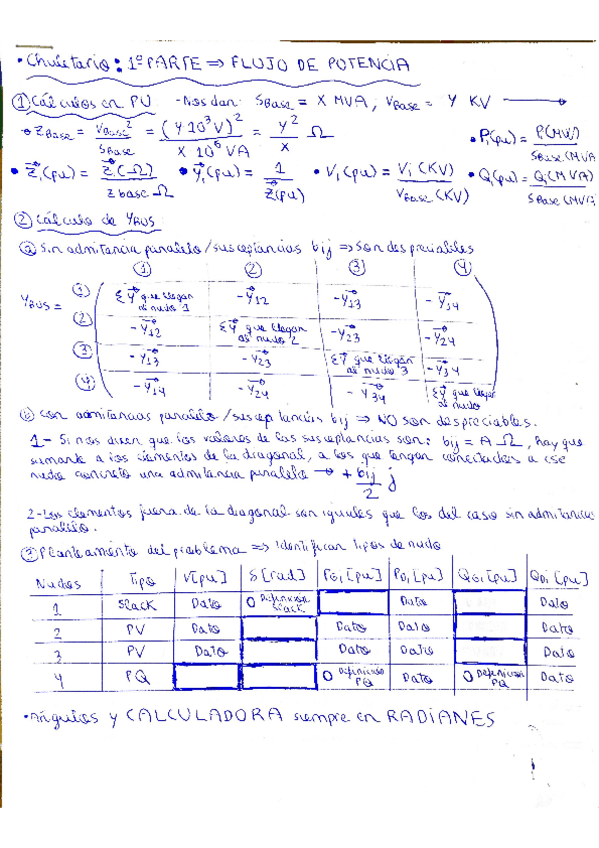 • Chuletario: 1ª PARTE ⇒ FLUJO DE POTENCIA
① Cálculos en PU - Nos dan: SBase = X MVA, VBase = Y KV →
• ZBase = VBase² / SBase = (Y·10³V)² / X 10⁶ VA = Y² / X Ω • Pi(pu) = P(MW) / SBase (MVA)
• Zi(pu) = Zi(Ω) / Zbase Ω • yi(pu) = 1 / Z(pu) • Vi(pu) = Vi(KV) / VBase(KV) • Qi(pu) = Qi(MVA) / SBase(MVA)
② Cálculo de YBUS
ⓐ Sin admitancia paralelo/susceptancias bij ⇒ son despreciables
① ② ③ ④
YBUS =
① Σ Y que llegan al nudo 1 -Y12 -Y13 -Y14
② -Y12 Σ Y que llegan al nudo 2 -Y23 -Y24
③ -Y13 -Y23 Σ Y que llegan al nudo 3 -Y34
④ -Y14 -Y24 -Y34 Σ Y que llegan al nudo
ⓑ Con admitancias paralelo/susceptancias bij ⇒ NO son despreciables.
1- Si nos dicen que los valores de las susceptancias son: bij = A Ω, hay que
sumarle a los elementos de la diagonal, a los que tengan conectados a ese
nudo concreto una admitancia paralelo → + bij/2 j
2- Los elementos fuera de la diagonal son iguales que los del caso sin admitancias
paralelo.
③ Planteamiento del problema ⇒ Identificar tipos de nudo
Nudos Tipo V[pu] δ[rad] PGi[pu] PDi[pu] QGi[pu] QDi[pu]
1 Slack Dato 0 Definición slack Dato Dato
2 PV Dato Dato Dato Dato
3 PV Dato Dato Dato Dato
4 PQ 0 Definición PQ Dato 0 Definición PQ Dato
• Ángulos y CALCULADORA siempre en RADIANES